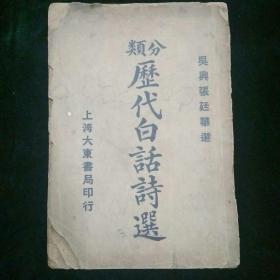 吳興張廷華選
分類
歷代白話詩選
上海大東書局印行